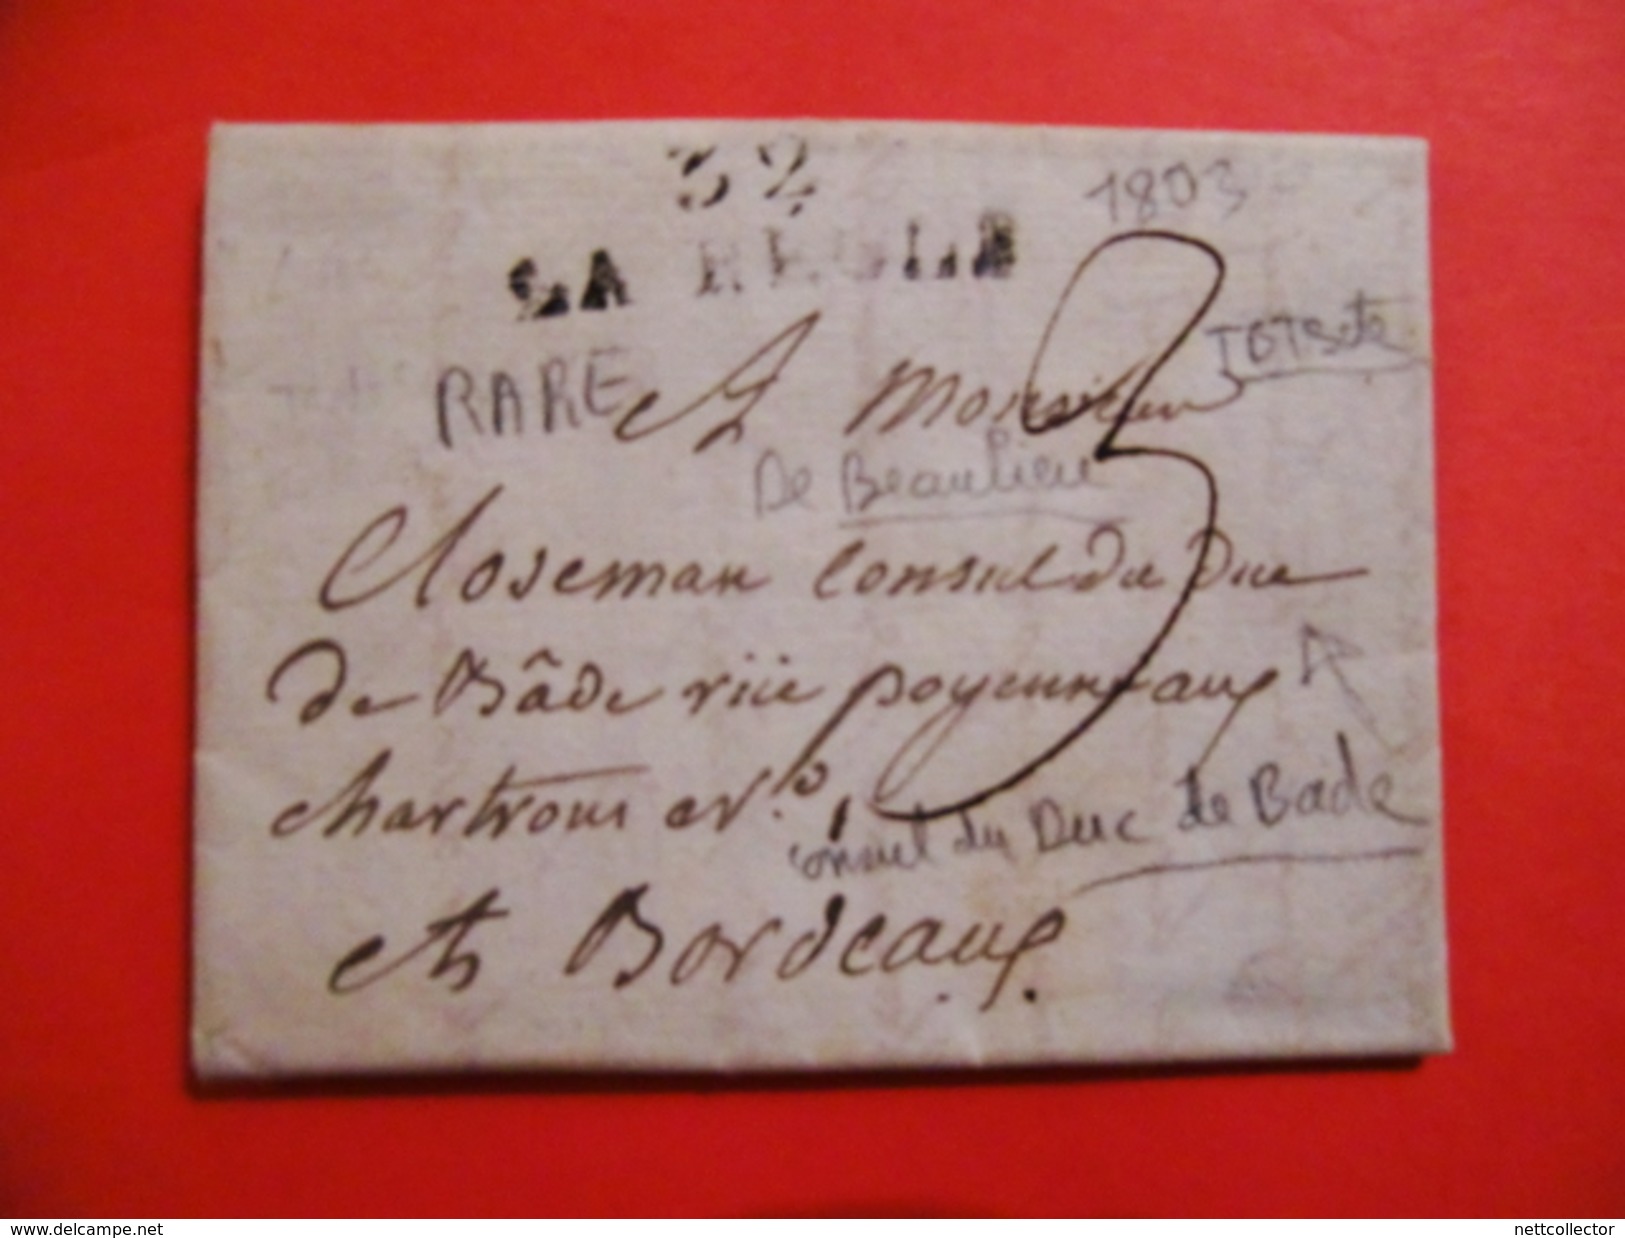 32
LA REOLE
1803
RARE
A Monsieur
De Beaulieu
Closeman Consul du Duc
de Bâde rüe poyenne aux
chartrons N.º 1
consul du Duc de Bade
A Bordeaux.
www.delcampe.net
nettcollector